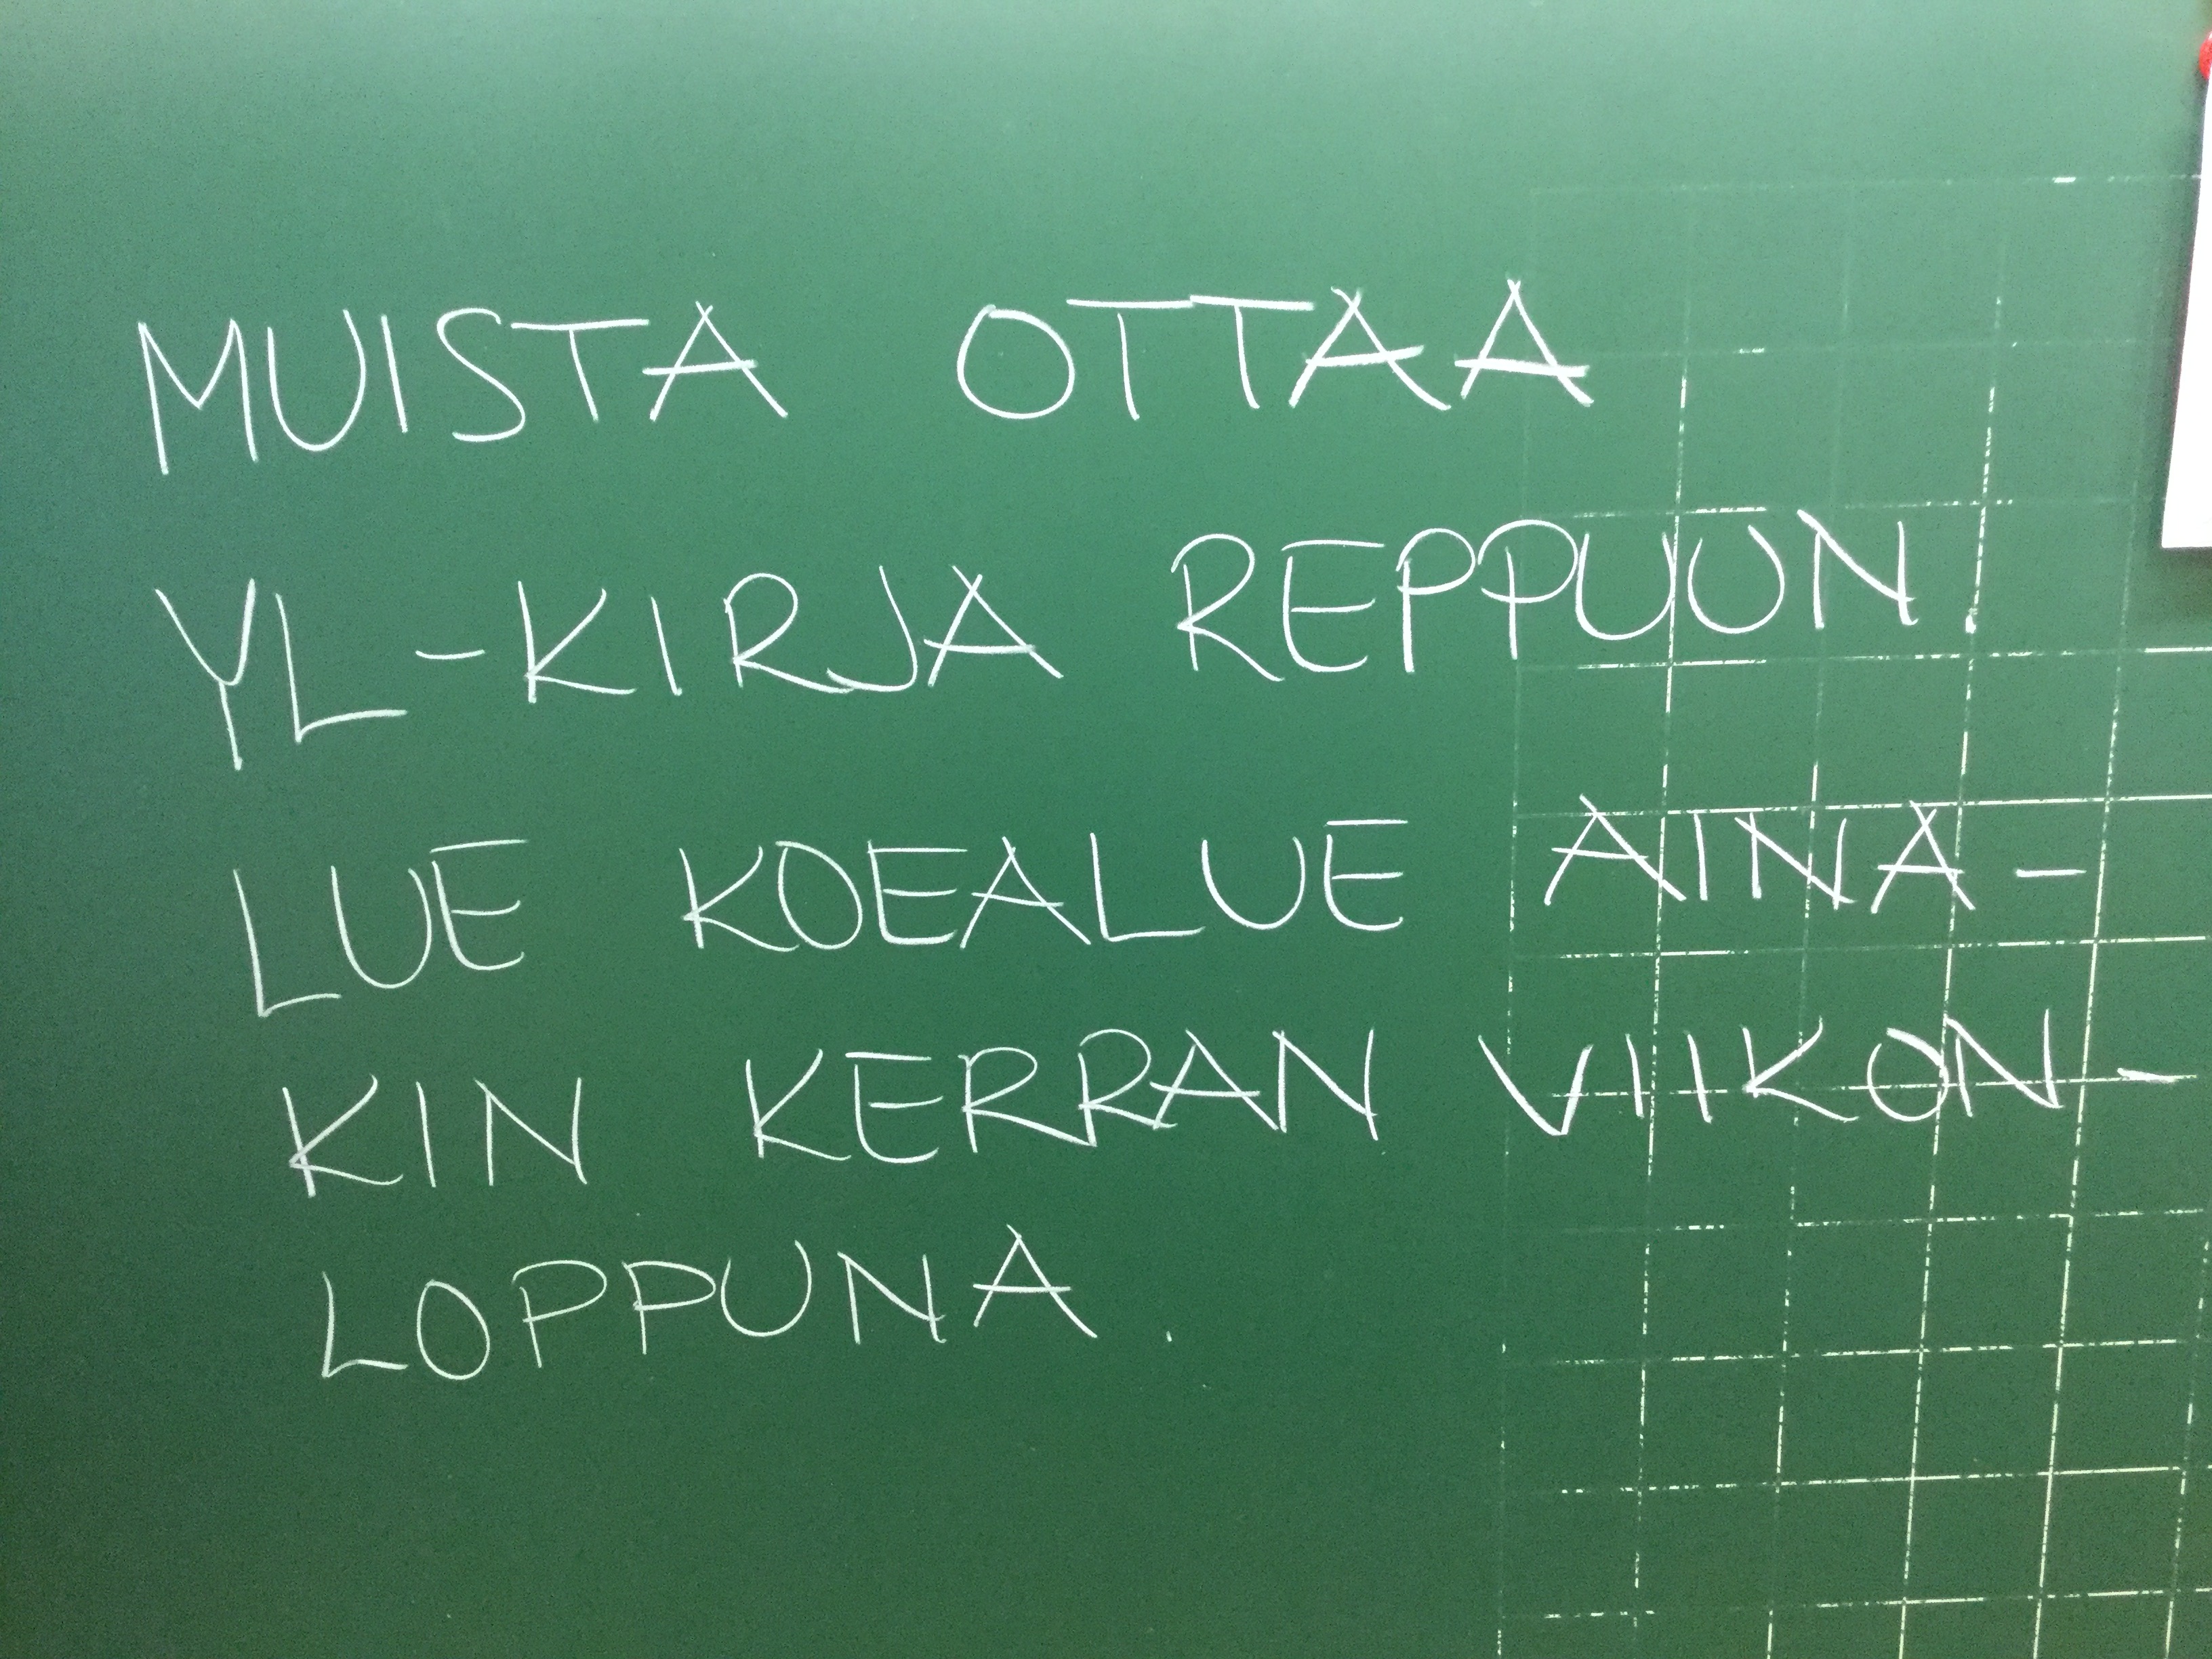 MUISTA OTTAA
YL-KIRJA REPPUUN.
LUE KOEALUE AINA-
KIN KERRAN VIIKON-
LOPPUNA.